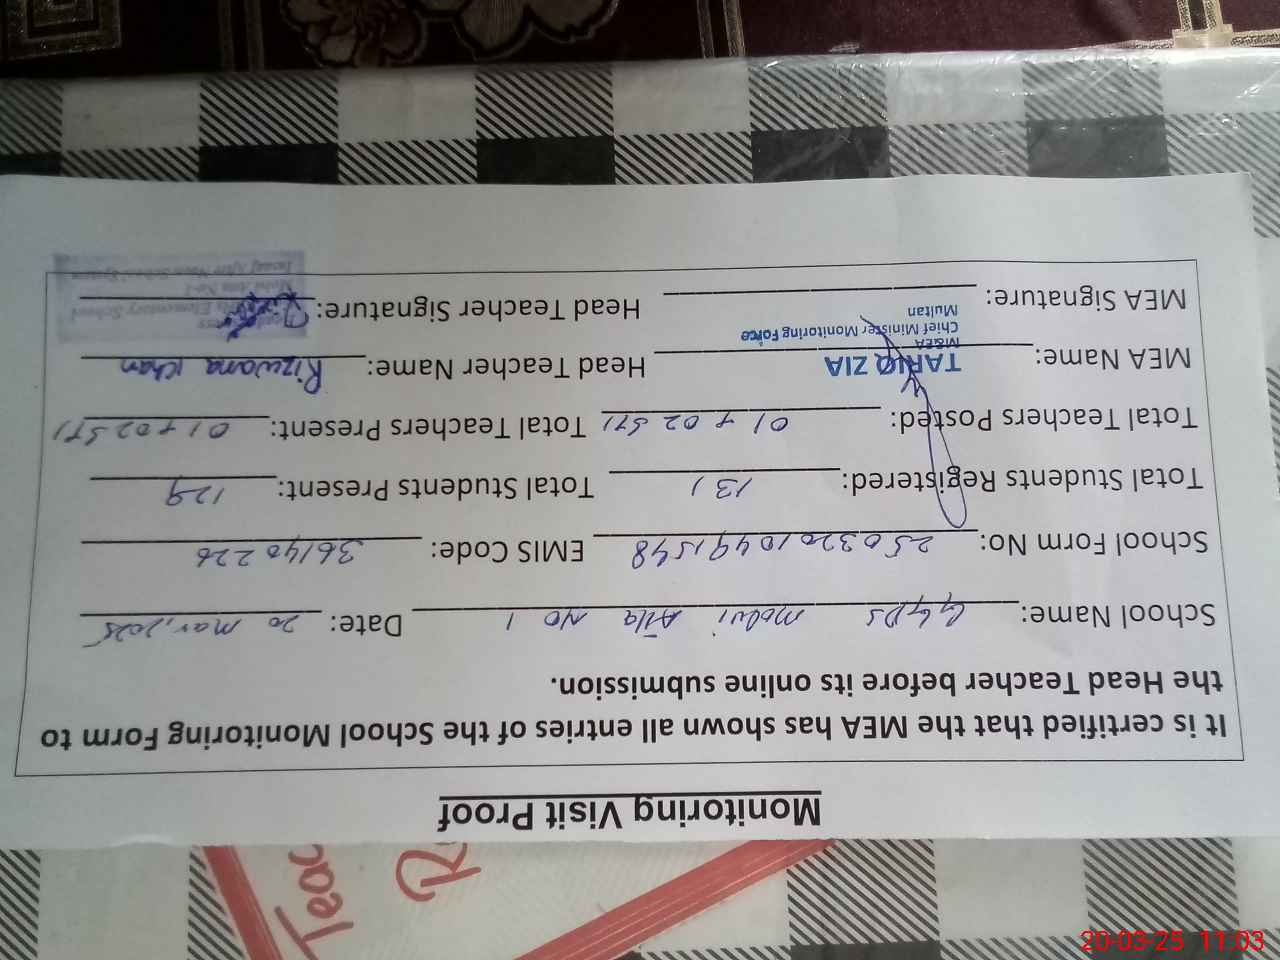 Monitoring Visit Proof
It is certified that the MEA has shown all entries of the School Monitoring Form to
the Head Teacher before its online submission.
School Name: GGPS Molvi Alla No 1 Date: 20 Mar, 2025
School Form No: 2503201049 1548 EMIS Code: 36140226
Total Students Registered: 131 Total Students Present: 129
Total Teachers Posted: 01 + 02 STI Total Teachers Present: 01 + 02 STI
MEA Name: TARIQ ZIA Head Teacher Name: Rizwana Khan
M&EA
Chief Minister Monitoring Force
Multan
MEA Signature: Head Teacher Signature:
Elementary School
After Noon School System
Teac
R
20-03-25 11:03